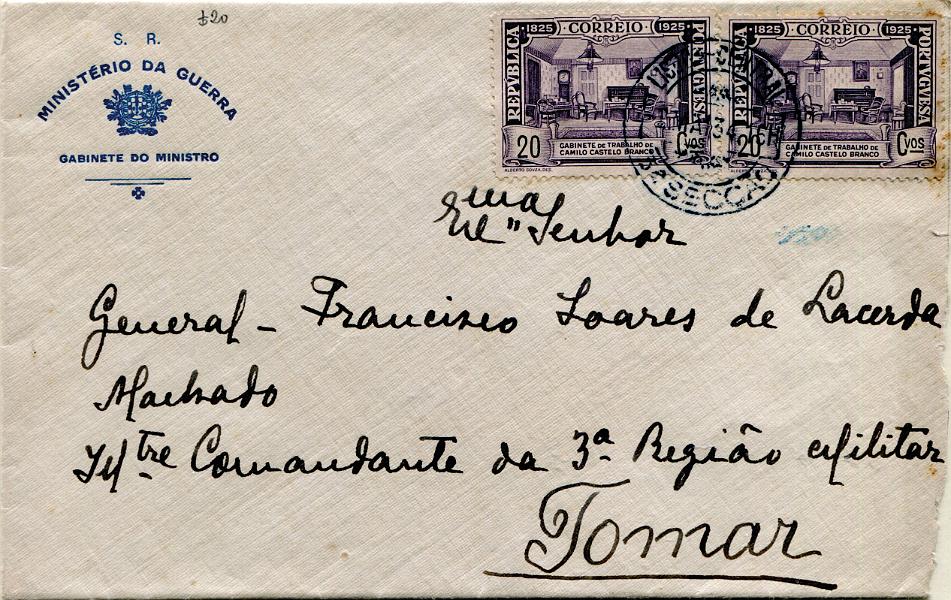 $20
S. R.
MINISTÉRIO DA GUERRA
GABINETE DO MINISTRO
1825 CORREIO 1925
REPVBLICA PORTVGVESA
20 GABINETE DE TRABALHO DE CAMILO CASTELO BRANCO Cvos
ALBERTO SOUZA, DES.
1825 CORREIO 1925
REPVBLICA PORTVGVESA
20 GABINETE DE TRABALHO DE CAMILO CASTELO BRANCO Cvos
CENTRAL
5ª SECCÃO
Senhor
General - Francisco Soares de Lacerda
Machado
Ilustre Comandante da 3ª Região Militar
Tomar